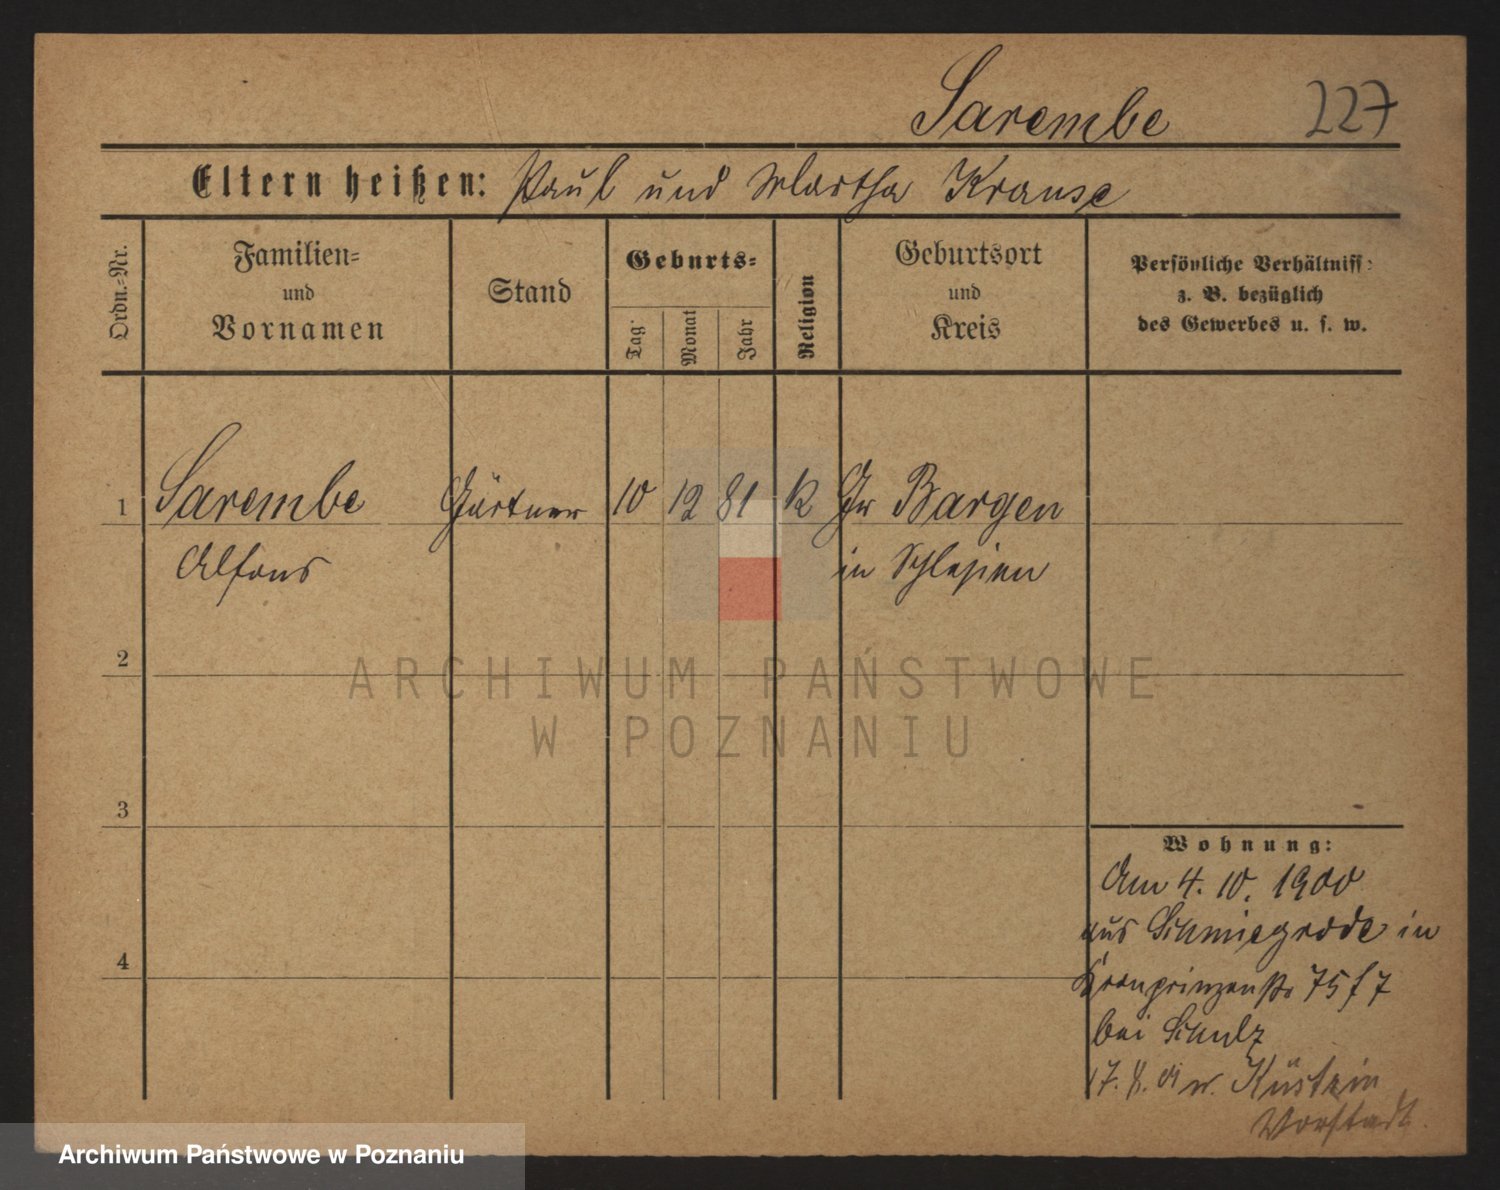 Sarembe 227
Eltern heißen: Paul und Martha Krause
Ordn.-Nr.
Familien-
und
Vornamen
Stand
Geburts-
Tag
Monat
Jahr
Religion
Geburtsort
und
Kreis
Persönliche Verhältniss
z. B. bezüglich
des Gewerbes u. s. w.
1 Sarembe Gärtner 10 12 81 K Gr Bargen
Alfons in Schlesien
2
ARCHIWUM PAŃSTWOWE
W POZNANIU
3
Wohnung:
Am 4. 10. 1900
aus Schmiegrode in
Kronprinzenstr 75 f 7
bei Schulz
4
17. 8. 01 n. Küstrin
Vorstadt.
Archiwum Państwowe w Poznaniu